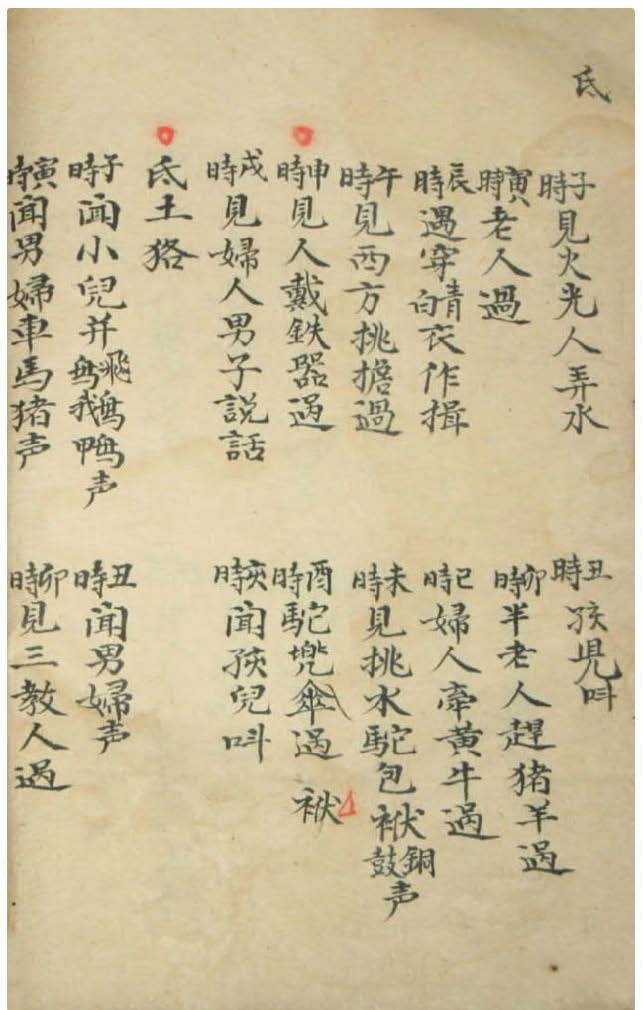 氐
子時見火光人弄水
丑時孩児呌
寅時老人過
卯時半老人趕猪羊過
辰時遇穿青白衣作揖
巳時婦人牽黄牛過
午時見西方挑擔過
未時見挑水駝包袱銅鼓声
申時見人戴鉄器過
酉時駝兠傘過
袱
戌時見婦人男子説話
亥時聞孩兒呌
氐土狢
子時聞小兒并飛鳥鵝鴨声
丑時聞男婦声
寅時聞男婦車馬猪声
卯時見三教人過